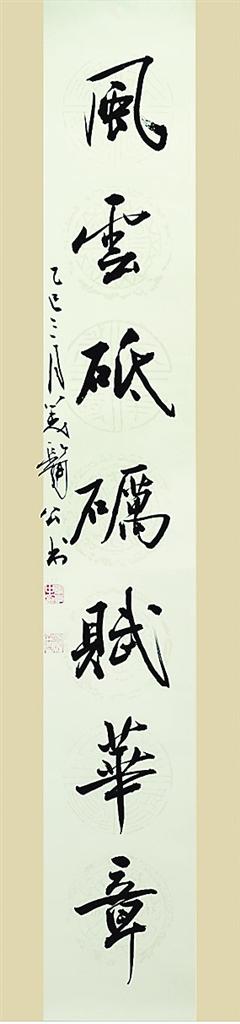 風雲砥礪賦華章
乙巳三月美髯公书